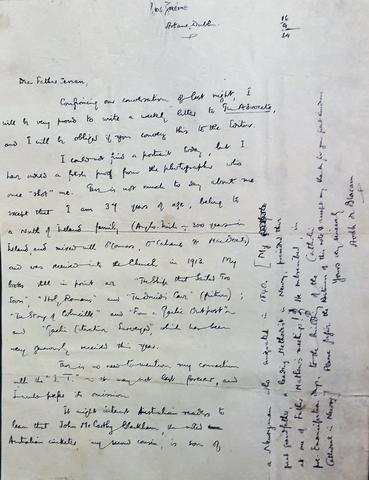 Artane, Dublin.
16
24
Dear Father Tiernan,
Confirming our conversation of last night, I
will be very proud to write a weekly letter to The Advocate,
and I will be obliged if you convey this to the Editor.
I could not find a portrait today, but I
have asked a fresh proof from the photographer who
once "shot" me. There is not much to say about me
except that I am 37 years of age, belong to
a North of Ireland family (Anglo-Irish - 300 years in
Ireland and mixed with O'Connors, O'Cahans & MacDonnells)
and was received into the Church in 1913. My
books still in print are "The Ship that Sailed Too
Soon", "Holy Romans" and "The Druid's Cave" (fiction);
"The Story of Colmcille" and "From a Gaelic Outpost" &
"Gaelic Literature Surveyed", which has been
very generously received this year.
There is no need to mention my connection
with the "I. T." - it may not last forever, and
I would prefer its omission.
It might interest Australian readers to
learn that John McCarthy Blackham, the noted
Australian cricketer my second cousin, is son of
a Newryman who migrated in 1840. [My
great grandfather, a leading Methodist in Newry, presided
at one of Father Mathew's meetings & he subscribed, in
pre-Emancipation days, to the building of the Catholic
Cathedral in Newry]
Please forgive the of this note & accept my thanks for your great kindness.
Yours very sincerely
Aodh de Blacam